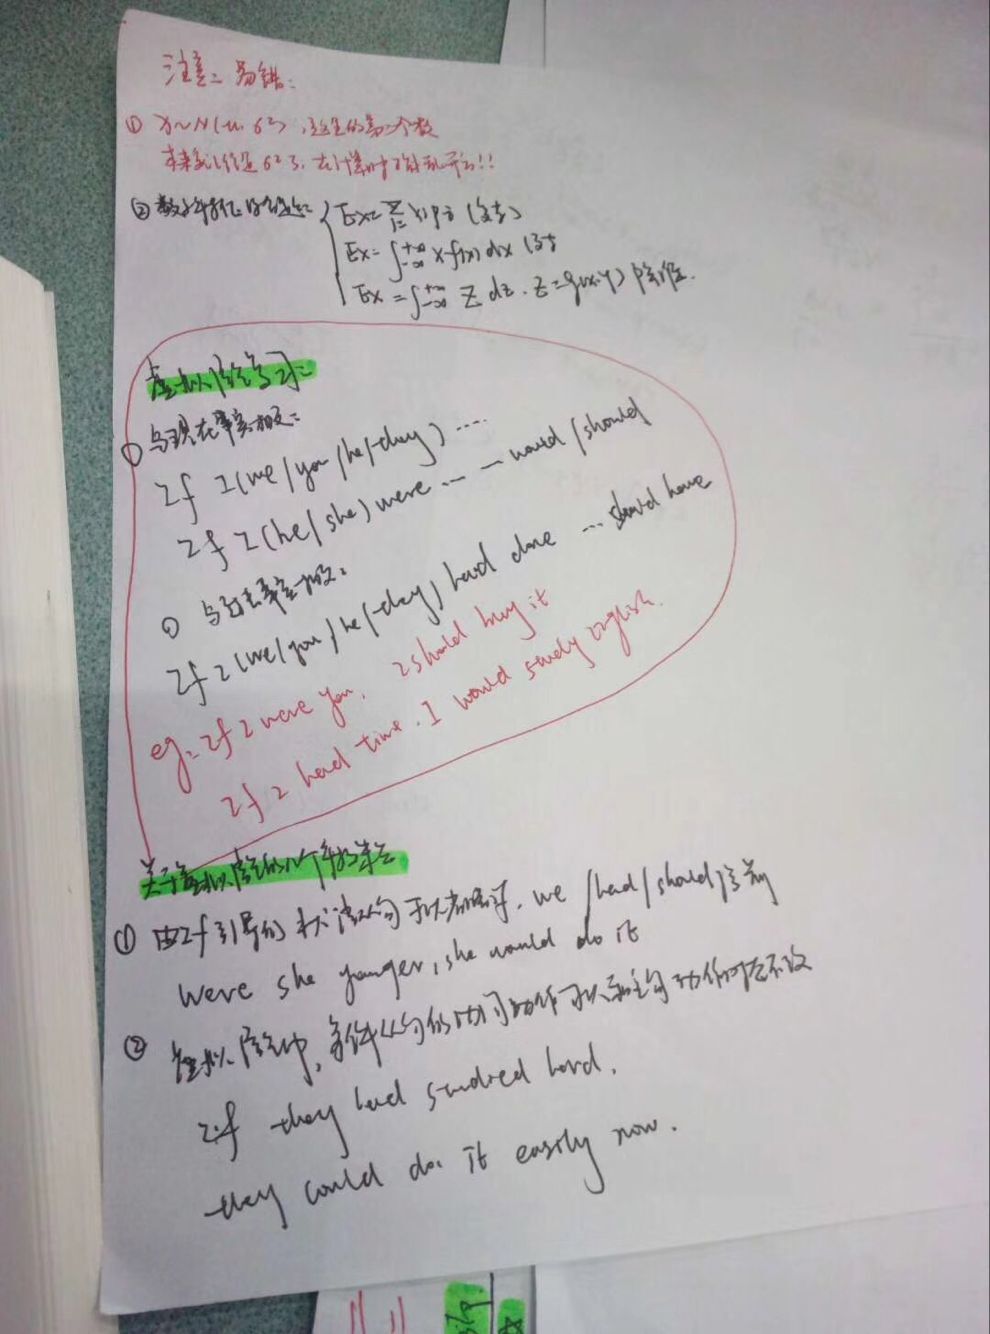 注意:易错:
① X~N(μ, σ²),这里的第二个数
本来就已经是σ²了,在计算时不要再平方!!
② 数字特征的
EX=Σ xipi
EX=∫+∞-∞ xf(x)dx
EX=∫+∞-∞ Z dz. Z=g(x·y)
虚拟语气学习:
① 与现在事实相反:
If I(we/you/he/they) ....
If I(he/she) were ... — would/should
② 与过去事实相反:
If I(we/you/he/they) had done ... should have
eg: If I were you, I should buy it
If I had time. I would study English.
关于虚拟语气的几个
① 由If引导的状语从句可以省略if. we /had/should
Were she younger, she would do it
② 虚拟语气中,条件从句的动词动作可以和主句动作时态不一致
If they had studied hard.
they could do it easily now.